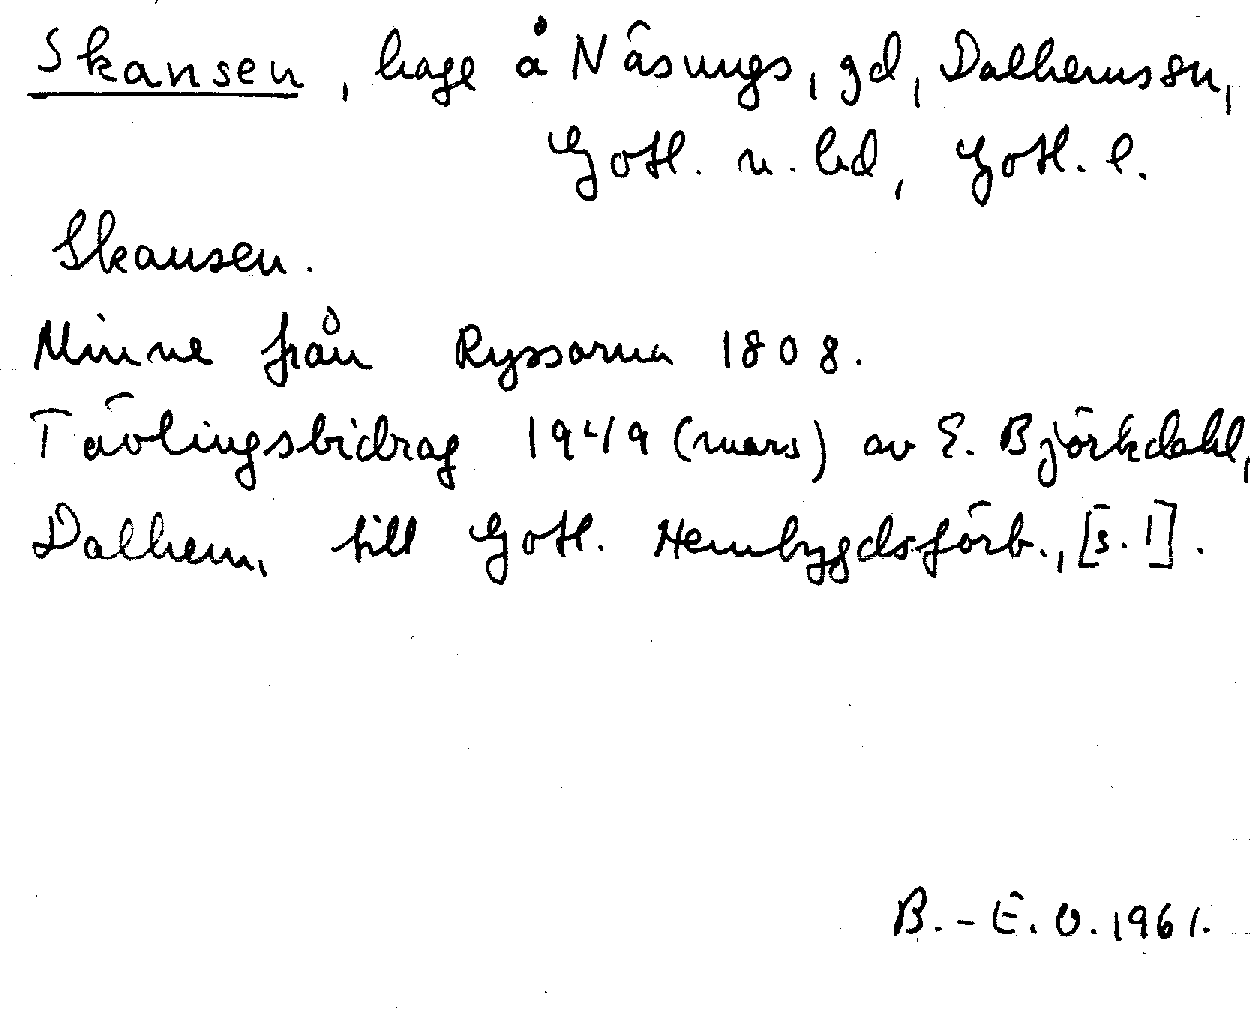 Skansen, hage å Näsungs, gd, Dalhems sn,
Gotl. n. hd, Gotl. l.
Skansen.
Minne från Ryssarna 1808.
Tävlingsbidrag 1949 (mars) av E. Björkdahl,
Dalhem, till Gotl. Hembygdsförb., [s. 1].
B.-E. O. 1961.